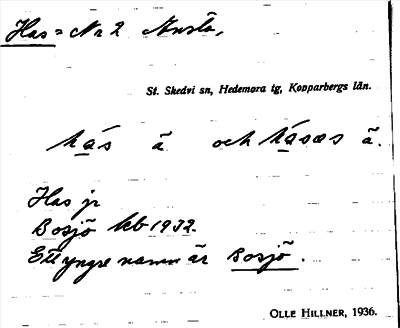 Has = Nr 2 Ansta,
St. Skedvi sn, Hedemora tg, Kopparbergs län.
hás ä och hásas ä.
Has jr
Bosjö kb 1932.
Ett yngre namn är Bosjö.
OLLE HILLNER, 1936.